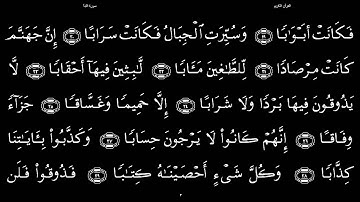 القرآن الكريم سورة النبأ
فَكَانَتْ أَبْوَٰبًا ١٩ وَسُيِّرَتِ ٱلْجِبَالُ فَكَانَتْ سَرَابًا ٢٠ إِنَّ جَهَنَّمَ
كَانَتْ مِرْصَادًا ٢١ لِّلطَّٰغِينَ مَـَٔابًا ٢٢ لَّٰبِثِينَ فِيهَآ أَحْقَابًا ٢٣ لَّا
يَذُوقُونَ فِيهَا بَرْدًا وَلَا شَرَابًا ٢٤ إِلَّا حَمِيمًا وَغَسَّاقًا ٢٥ جَزَآءً
وِفَاقًا ٢٦ إِنَّهُمْ كَانُوا۟ لَا يَرْجُونَ حِسَابًا ٢٧ وَكَذَّبُوا۟ بِـَٔايَٰتِنَا
كِذَّابًا ٢٨ وَكُلَّ شَىْءٍ أَحْصَيْنَٰهُ كِتَٰبًا ٢٩ فَذُوقُوا۟ فَلَن